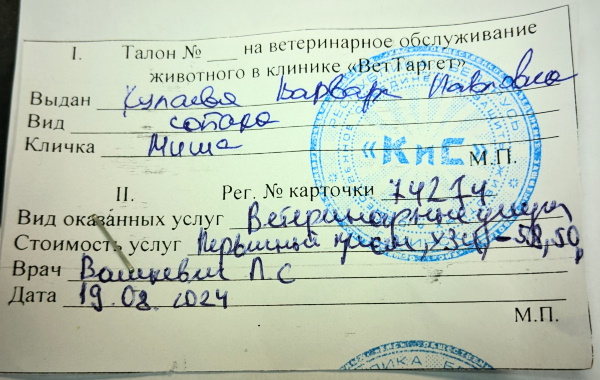 I. Талон № ___ на ветеринарное обслуживание
животного в клинике «ВетТаргет»
Выдан Варваре Павловне
Вид собака
Кличка Миша
М.П.
«КиС»
II. Рег. № карточки 74274
Вид оказанных услуг Ветеринарные услуги
Стоимость услуг Первичный прием, УЗИ - 58,50
Врач Вашкевич Л.С
Дата 19.08.2024
М.П.